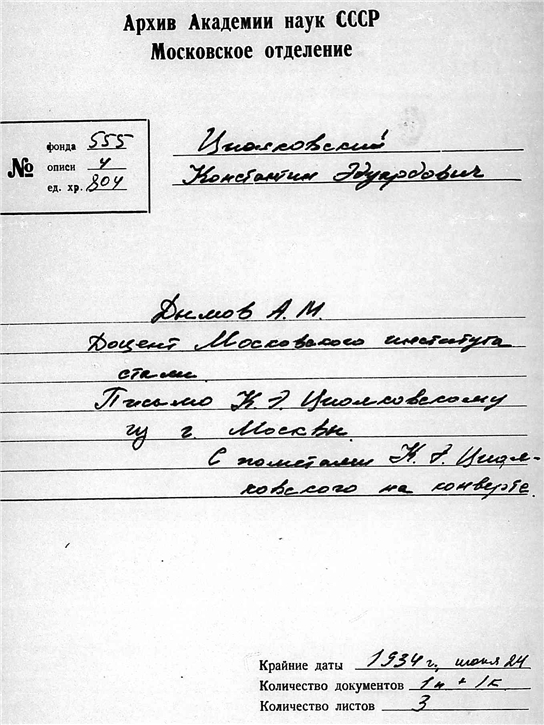 Архив Академии наук СССР
Московское отделение
№
фонда 555
описи 4
ед. хр. 804
Циолковский
Константин Эдуардович
Дымов А.М.
Доцент Московского института
стали.
Письмо К.Э. Циолковскому
из г. Москвы.
С пометами К.Э. Циол-
ковского на конверте.
Крайние даты 1934 г., июня 24
Количество документов 1п + 1к.
Количество листов 3